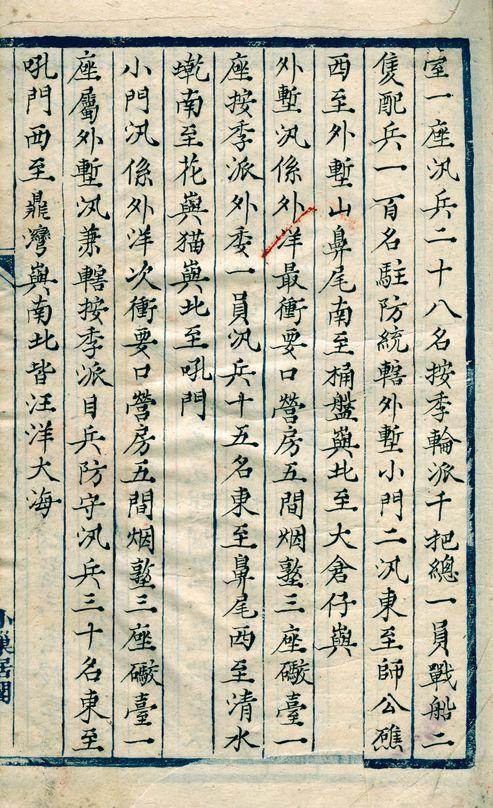 室一座汛兵二十八名按季輪派千把總一員戰船二
隻配兵一百名駐防統轄外塹小門二汛東至師公礁
西至外塹山鼻尾南至桶盤嶼北至大倉仔嶼
外塹汛係外洋最衝要口營房五間烟墪三座礮臺一
座按季派外委一員汛兵十五名東至鼻尾西至清水
墘南至花嶼猫嶼北至吼門
小門汛係外洋次衝要口營房五間烟墪三座礮臺一
座屬外塹汛兼轄按季派目兵防守汛兵三十名東至
吼門西至鼎灣嶼南北皆汪洋大海